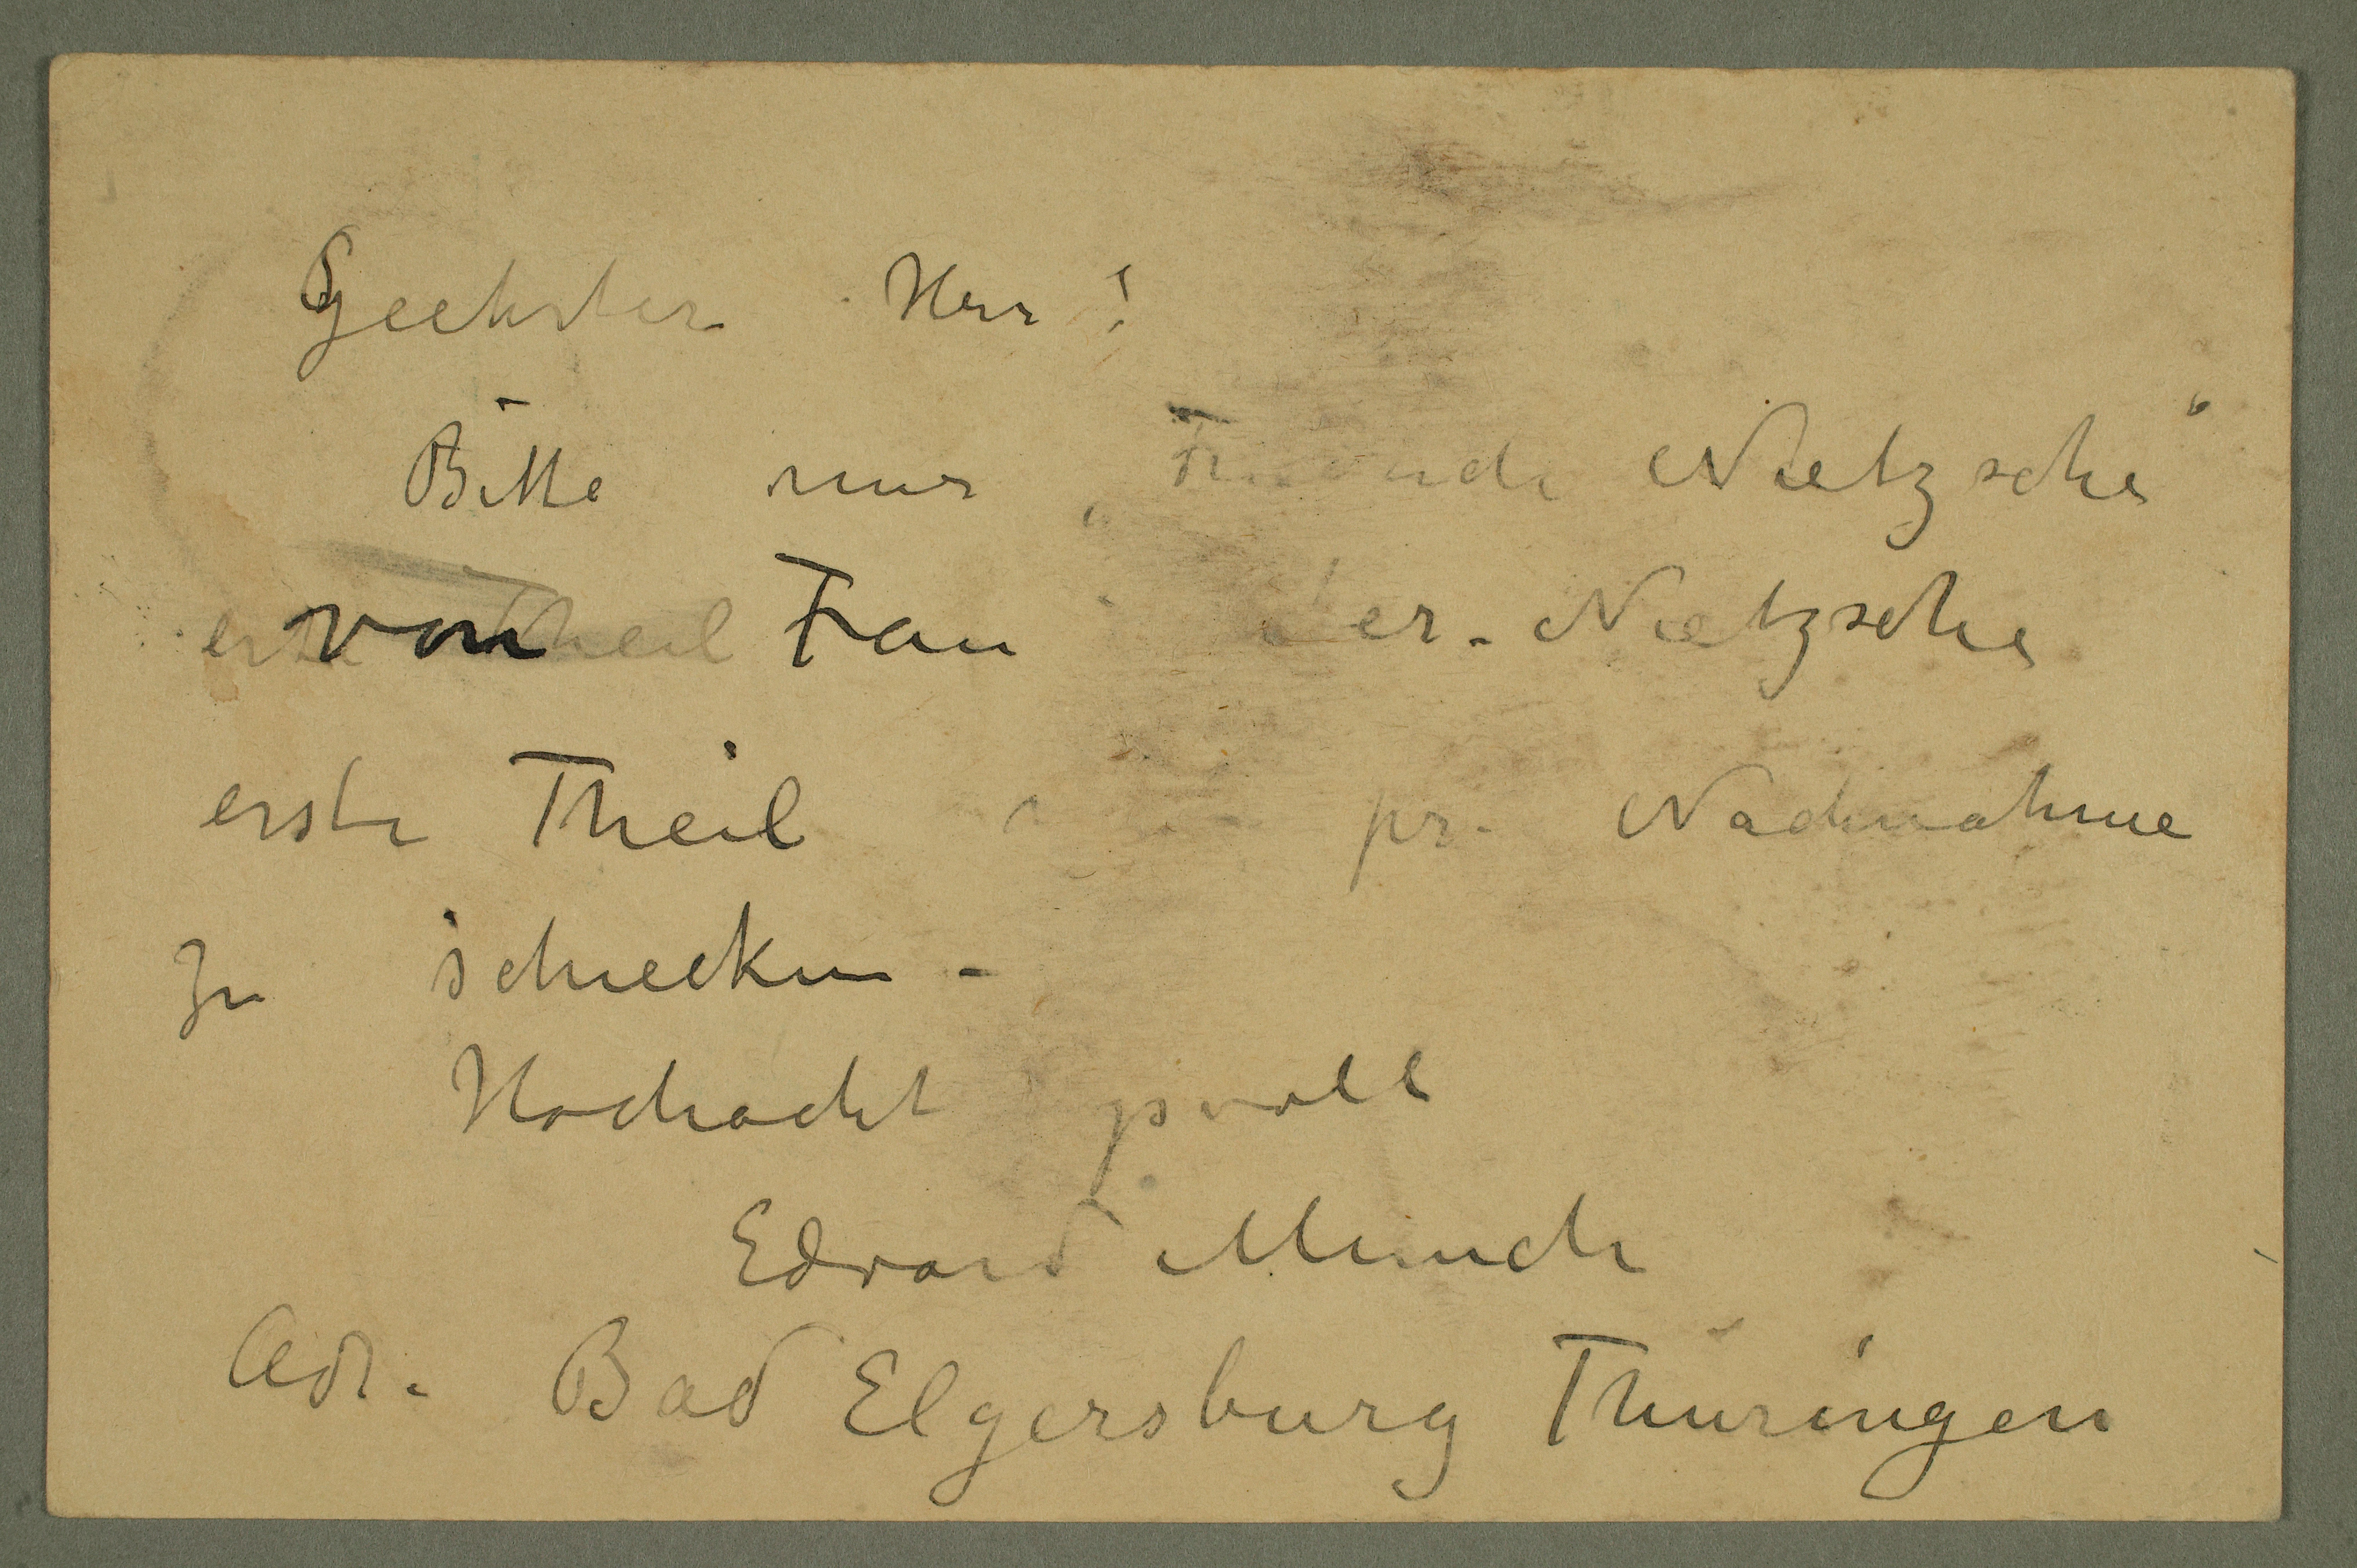 Geehrter Herr!
Bitte mir „Freunde Nietzsche“
von Frau Nietzsche
erste Theil pr. Nachnahme
zu schiecken –
Hochachtgsvoll
Edvard Munch
Adr. Bad Elgersburg Thüringen